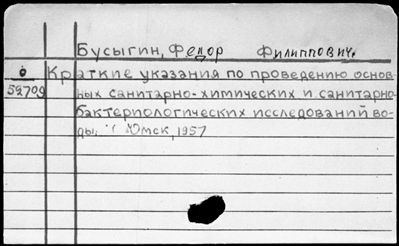 Бусыгин, Федор Филиппович.
о Краткие указания по проведению основ-
59709 ных санитарно-химических и санитарно-
бактериологических исследований во-
ды. Омск, 1957